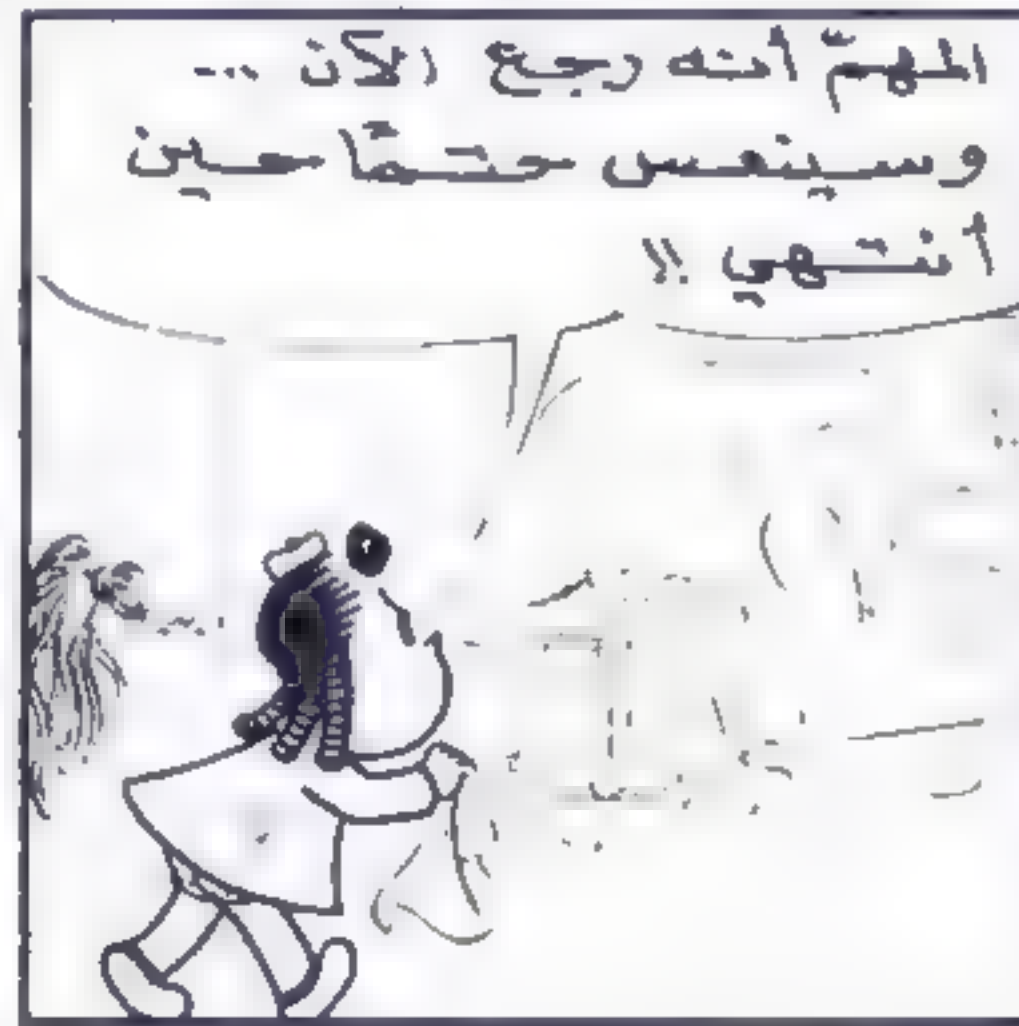 المهمّ أنه رجع الآن ...
وسينعس حتمًا حين
أنتهي !!